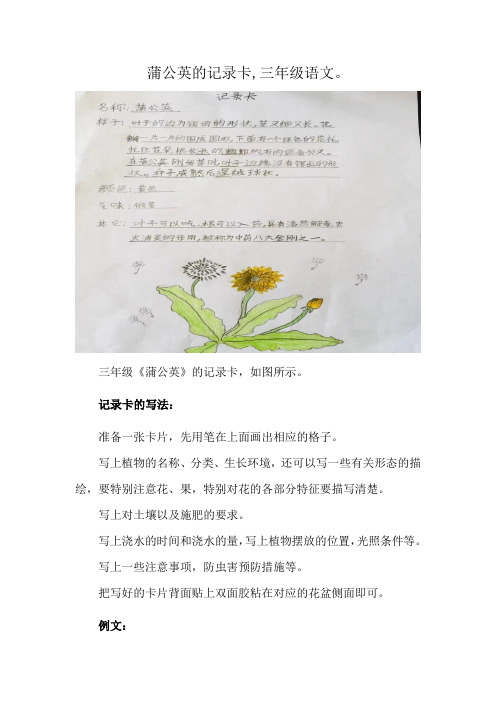 蒲公英的记录卡,三年级语文。
记录卡
名称:蒲公英
样子:叶子的边为锯齿的形状,茎又细又长。花
一片一片的围成圆形,下面有一个绿色的花托,
在蒲公英刚出苗时,叶子边缘没有锯齿的形
状。种子成熟后呈绒球状。
颜色:黄色
气味:微苦
其它:叶子可以吃,根可以入药,具有清热解毒,去
火消炎的作用,被称为中药八大金刚之一。
三年级《蒲公英》的记录卡,如图所示。
记录卡的写法:
准备一张卡片,先用笔在上面画出相应的格子。
写上植物的名称、分类、生长环境,还可以写一些有关形态的描
绘,要特别注意花、果,特别对花的各部分特征要描写清楚。
写上对土壤以及施肥的要求。
写上浇水的时间和浇水的量,写上植物摆放的位置,光照条件等。
写上一些注意事项,防虫害预防措施等。
把写好的卡片背面贴上双面胶粘在对应的花盆侧面即可。
例文: